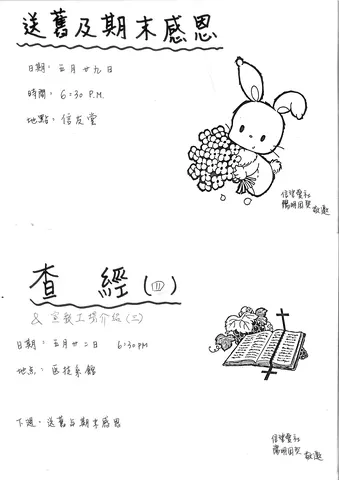 送舊及期末感恩
日期: 五月廿九日
時間: 6:30 P.M.
地點: 信友堂
信望愛社
陽明團契 敬邀
查 經 (四)
& 宣教工場介紹 (三)
日期: 五月廿二日 6:30 PM
地点: 醫技系館
下週: 送舊与期末感恩
信望愛社
陽明團契 敬邀